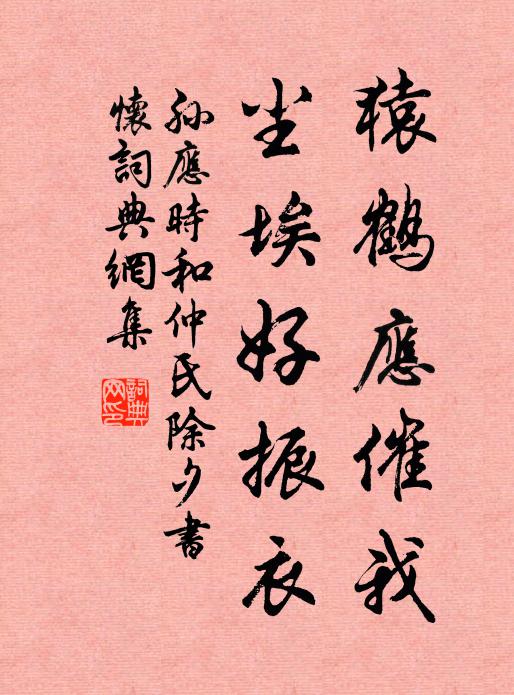 猿鶴應催我
尘埃好振衣
孙應時和仲氏除夕書
懷詞典網集
詞典
网印